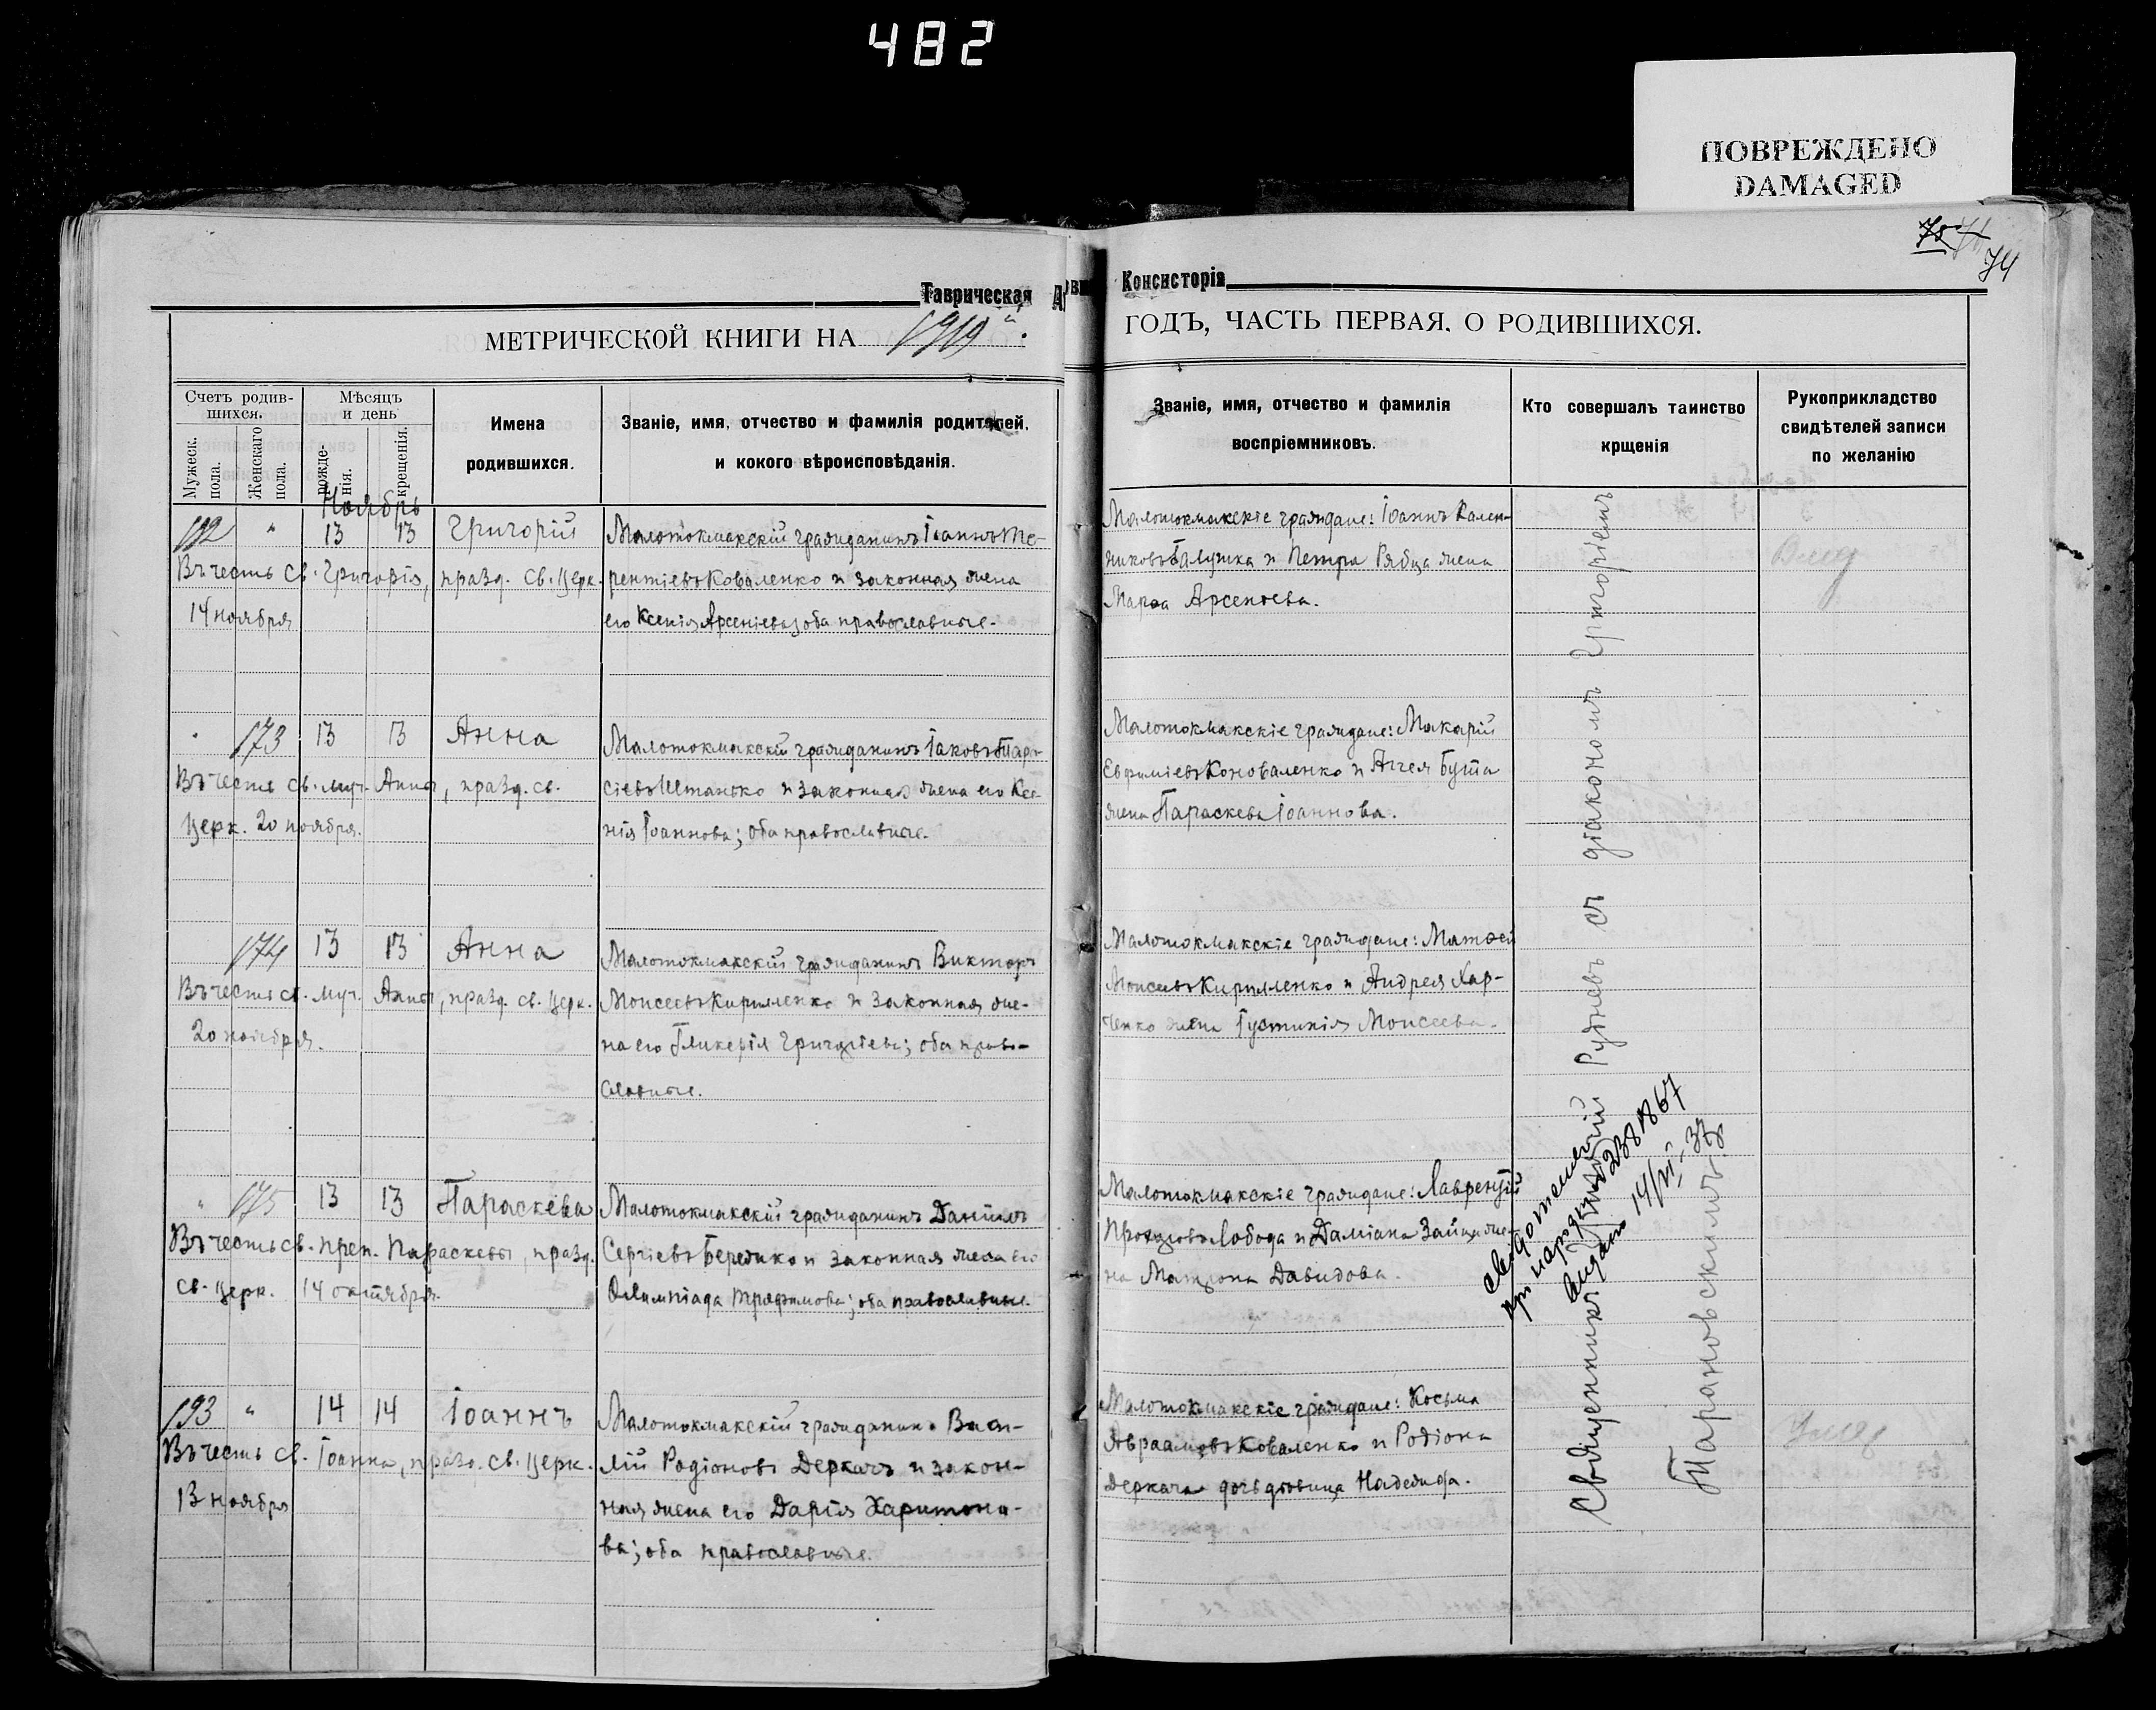 482
ПОВРЕЖДЕНО
DAMAGED
74
Таврическая
Консисторія
МЕТРИЧЕСКОЙ КНИГИ НА 1919й.
ГОДЪ, ЧАСТЬ ПЕРВАЯ. О РОДИВШИХСЯ.
Счетъ родив-
шихся.
Мужеск.
пола.
Женскаго
пола.
Мѣсяцъ
и день
рожде-
нія.
крещенія.
Имена
родившихся.
Званіе, имя, отчество и фамилія родителей,
и кокого вѣроисповѣданія.
Званіе, имя, отчество и фамилія
воспріемниковъ.
Кто совершалъ таинство
крщенія
Рукоприкладство
свидѣтелей записи
по желанію
Ноябрь
192 " 13 13 Григорій
Въ честь св. Григорія, празд. св. Церк.
14 ноября
Малотокмакскій гражданинъ Іоаннъ Те-
рентіевъ Коваленко и законная жена
его Ксенія Арсеніева; оба православные.
Малотокмакскіе граждане: Іоаннъ Кален-
никовъ Галушка и Петра Рябца жена
Марѳа Арсеніева.
" 173 13 13 Анна
Въ честь св. муч. Анны, празд. св.
Церк. 20 ноября.
Малотокмакскій гражданинъ Іаковъ Тара-
сіевъ Штанько и законная жена его Ксе-
нія Іоаннова; оба православные.
Малотокмакскіе граждане: Макарій
Евфиміевъ Коноваленко и Аггея Бута
жена Параскева Іоаннова.
174 13 13 Анна
Въ честь св. муч. Анны, празд. св. Церк.
20 ноября.
Малотокмакскій гражданинъ Викторъ
Моисеевъ Кириленко и законная же-
на его Гликерія Григоріева; оба право-
славные.
Малотокмакскіе граждане: Матѳей
Моисеевъ Кириленко и Андрея Хар-
ченко жена Іустинія Моисеева.
" 175 13 13 Параскева
Въ честь св. преп. Параскевы, празд.
св. Церк. 14 октября.
Малотокмакскій гражданинъ Даніилъ
Сергіевъ Бережко и законная жена его
Олимпіада Трифимова; оба православные.
Малотокмакскіе граждане: Лаврентій
Прохоровъ Лобода и Даміана Зайца же-
на Матрона Давидова.
193 " 14 14 Іоаннъ
Въ честь св. Іоанна, празд. св. Церк.
13 ноября
Малотокмакскій гражданинъ Васи-
лій Родіоновъ Деркачъ и закон-
ная жена его Дарія Харитоно-
ва; оба православные.
Малотокмакскіе граждане: Косьма
Авраамовъ Коваленко и Родіона
Деркача дочь дѣвица Надежда.
Священникъ Григорій Рудневъ съ діакономъ Григоріемъ
Тарановскимъ.
видано 14/VI-37 р
Умер
Умер